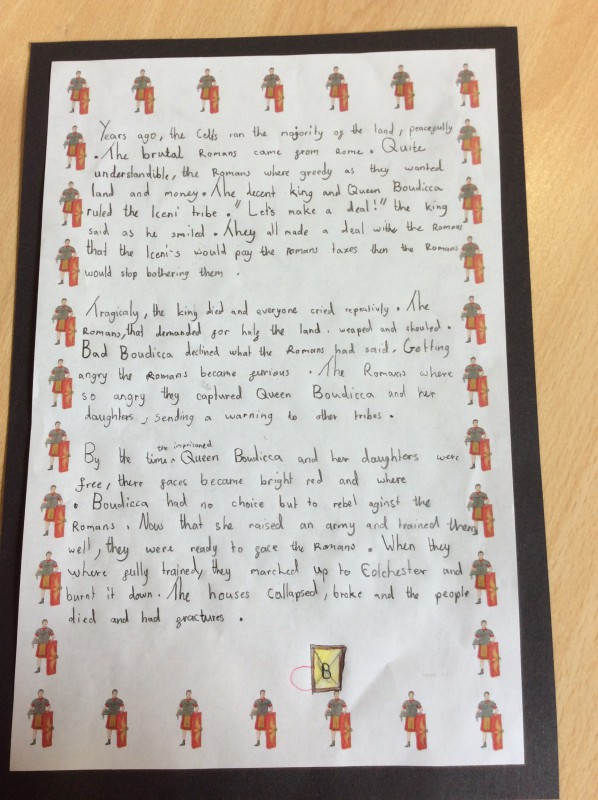 Years ago, the Celts ran the majority of the land, peacefully
. The brutal Romans came from Rome. Quite
understandible, the Romans where greedy as they wanted
land and money. The decent king and Queen Boudicca
ruled the Iceni tribe. "Let's make a deal!" the king
said as he smiled. They all made a deal withe the Romans
that the Iceni-s would pay the Romans taxes then the Romans
would stop bothering them .
Tragicaly, the king died and everyone cried repeativly. The
Romans, that demanded for half the land, weaped and shouted.
Bad Boudicca declined what the Romans had said. Getting
angry the Romans became furious . The Romans where
so angry they captured Queen Boudicca and her
daughters, sending a warning to other tribes.
By the time the inprisoned Queen Boudicca and her daughters were
free, there faces became bright red and where
. Boudicca had no choice but to rebel aginst the
Romans. Now that she raised an army and trained them
well, they were ready to face the Romans. When they
where fully trained, they marched up to Colchester and
burnt it down. The houses collapsed, broke and the people
died and had fractures.
B